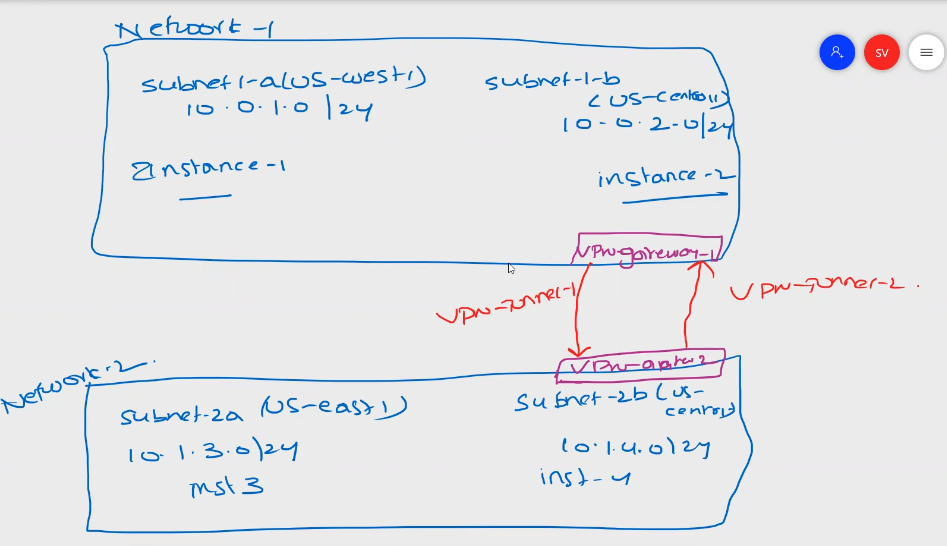 Network-1
subnet1-a(US-west1)
10.0.1.0/24
subnet-1-b
(US-central1)
10.0.2.0/24
Instance-1
instance-2
VPN-gateway-1
VPN-Tunnel-1
VPN-Tunnel-2.
Network-2.
subnet-2a (US-east1)
10.1.3.0/24
inst 3
subnet-2b (us-
central)
10.1.4.0/24
inst-4
SV